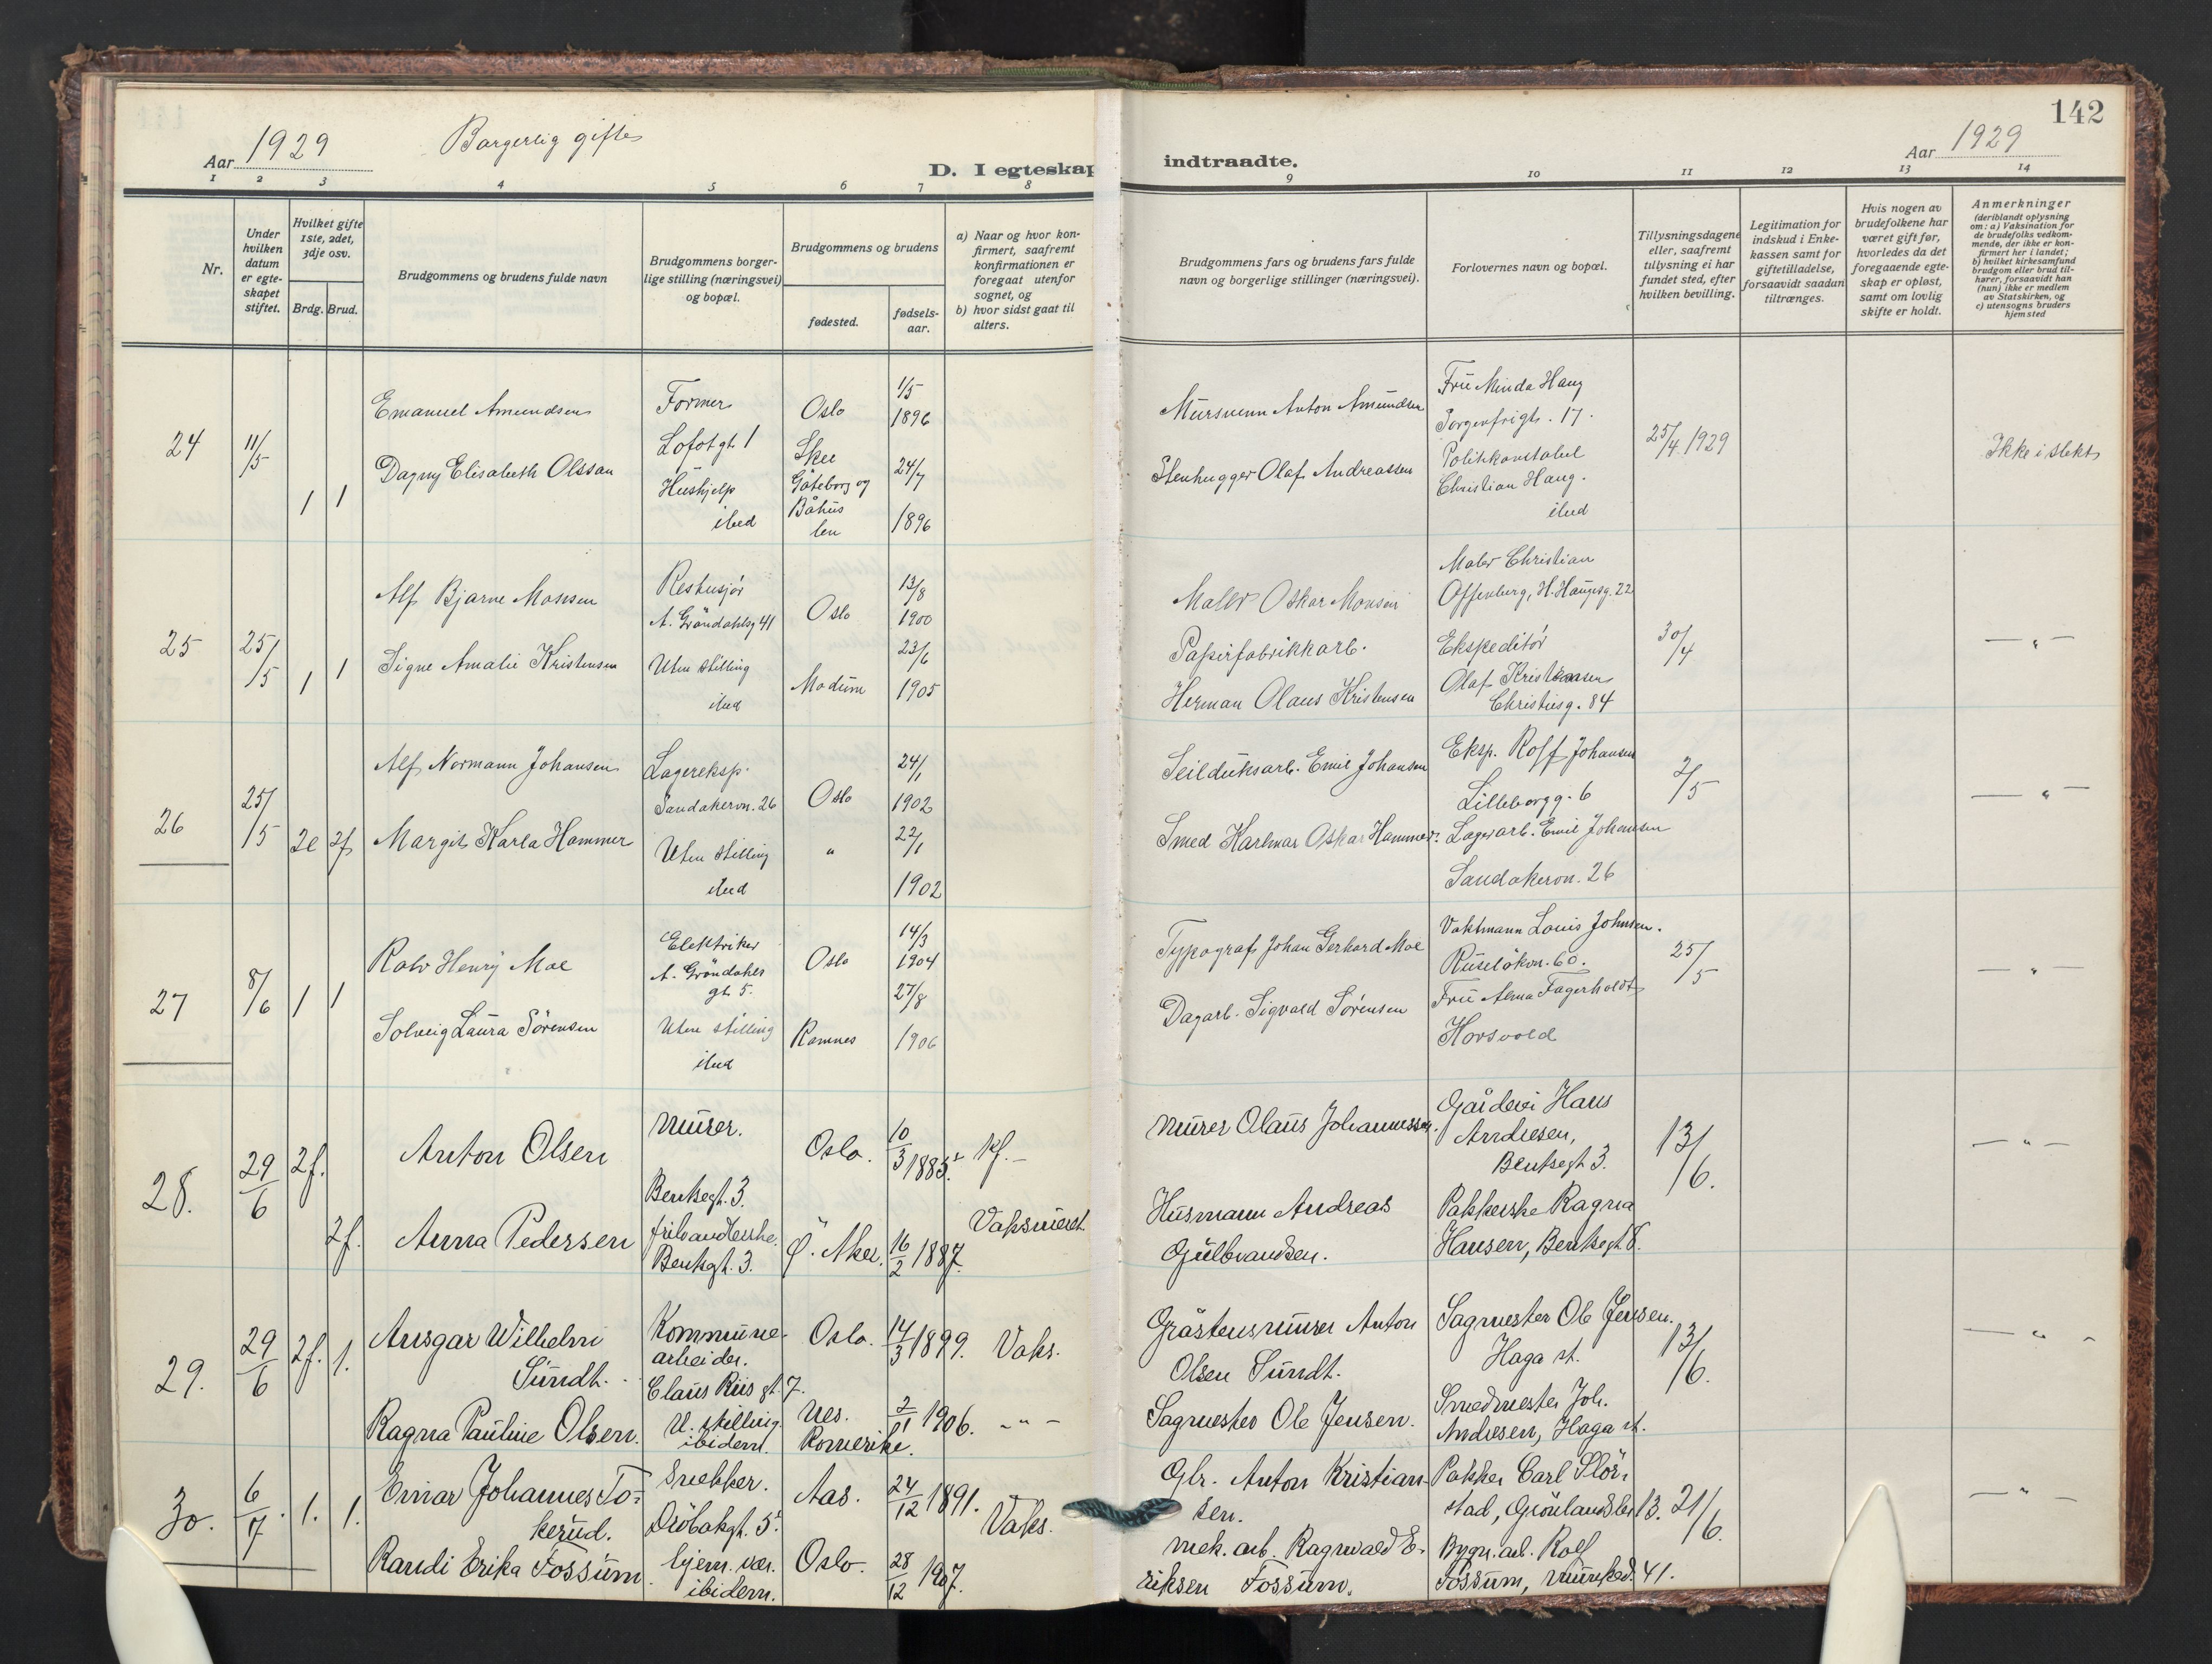 142
Aar 1929 Borgerlig gifte
Aar 1929
D. I egteskap indtraadte.
1 2 3 4 5 6 7 8 9 10 11 12 13 14
Nr.
Under hvilken datum er egteskapet stiftet.
Hvilket gifte 1ste, 2det, 3dje osv.
Brdg. Brud.
Brudgommens og brudens fulde navn
Brudgommens borgerlige stilling (næringsvei) og bopæl.
Brudgommens og brudens
fødested.
fødselsaar.
a) Naar og hvor konfirmert, saafremt konfirmationen er foregaat utenfor sognet, og
b) hvor sidst gaat til alters.
Brudgommens fars og brudens fars fulde navn og borgerlige stillinger (næringsvei).
Forlovernes navn og bopæl.
Tillysningsdagene eller, saafremt tillysning ei har fundet sted, efter hvilken bevilling.
Legitimation for indskud i Enkekassen samt for giftetilladelse, forsaavidt saadan tiltrænges.
Hvis nogen av brudefolkene har været gift før, hvorledes da det foregaaende egteskap er opløst, samt om lovlig skifte er holdt.
Anmerkninger
(deriblandt oplysning om: a) Vaksination for de brudefolks vedkommende, der ikke er konfirmert her i landet; b) hvilket kirkesamfund brudgom eller brud tilhører, forsaavidt han (hun) ikke er medlem av Statskirken, og c) utensogns bruders hjemsted
24 11/5 1 1
Emanuel Amundsen
Former
Lofotgt. 1
Oslo
1/5 1896
Mursvenn Anton Amundsen
Fru Minda Haug
Sorgenfrigt. 17.
25/4 1929
Ikke i slekt
Dagny Elisabeth Olsson
Hushjelp
ibid
Skee
Göteborg og
Båhus
len
24/7 1896
Stenhugger Olaf Andreassen
Politikonstabel
Christian Haug.
ibid
25 25/5 1 1
Alf Bjarne Monsen
A. Gröndahlsg 41
Oslo
13/8 1900
Maler Oskar Monsen
Maler Christian
Offenberg, H. Haugsg. 22
30/4
— „ —
Signe Amalie Kristensen
Uten stilling
ibid
Modum
23/6 1905
Papirfabrikkarb.
Herman Olaus Kristensen
Ekspeditör
Olaf Kristensen
Christiesg. 84
26 25/5 2e 2f
Alf Normann Johansen
Lagereksp.
Sandakervn. 26
Oslo
24/1 1902
Seilduksarb. Emil Johansen
Eksp. Rolf Johansen
Lilleborgg. 6
2/5
— „ —
Margit Karla Hammer
Uten stilling
ibid
„
22/1 1902
Smed Karlmar Oskar Hammer.
Lagerarb. Emil Johansen
Sandakervn. 26
27 8/6 1 1
Ralv Henry Moe
Elektriker
A. Gröndahls
gt. 5.
Oslo
14/3 1904
Typograf Johan Gerhard Moe
Vaktmann Louis Johnsen.
Ruselökvn. 60.
25/5
— „ —
Solveig Laura Sörensen
Uten stilling
ibid
Ramnes
27/8 1906
Dagarb. Sigvald Sörensen
Fru Alma Fagerholdt
Horsvold
28. 29/6 2f. 2f.
Anton Olsen
Murer.
Bentsegt. 3.
Oslo.
10/3 1885.
Kf. —
Murer Olaus Johannessen.
Gårdeier Hans
Andresen,
Bentsegt 3.
13/6.
— „ —
Anna Pedersen
Bentsgt. 3.
Ø. Aker.
16/2 1887.
Vaksineret.
Husmann Andreas
Gulbrandsen.
Pakkerske Ragna
Hansen, Bentsegt 8.
29. 29/6 2f. 1.
Ansgar Wilhelm
Sundt.
Kommune-
arbeider.
Claus Riis gt. 7.
Oslo.
14/3 1899.
Vaks.
Gråstensmurer Anton
Olsen Sundt.
Sagmester Ole Jensen.
Haga st.
13/6.
— „ -
Ragna Pauline Olsen.
U. stilling
ibidem.
Nes.
Romerike.
2/11 1906.
- „ —
Sagmester Ole Jensen.
Smedmester Joh.
Andresen, Haga st.
30. 6/7. 1. 1.
Einar Johannes To-
kerud.
Snekker.
Dröbakgt. 5.
Aas.
24/12 1891.
Vaks.
Gbr. Anton Kristian-
sen.
Pakker Carl Flör-
stad, Grönlandsler 13.
21/6.
— „ —
Randi Erika Fossum
hjem. vær.
ibidem.
Oslo.
28/12 1907.
mek. arb. Ragnvald E-
riksen Fossum.
Bygn. arb. Rolf
Fossum, 41.